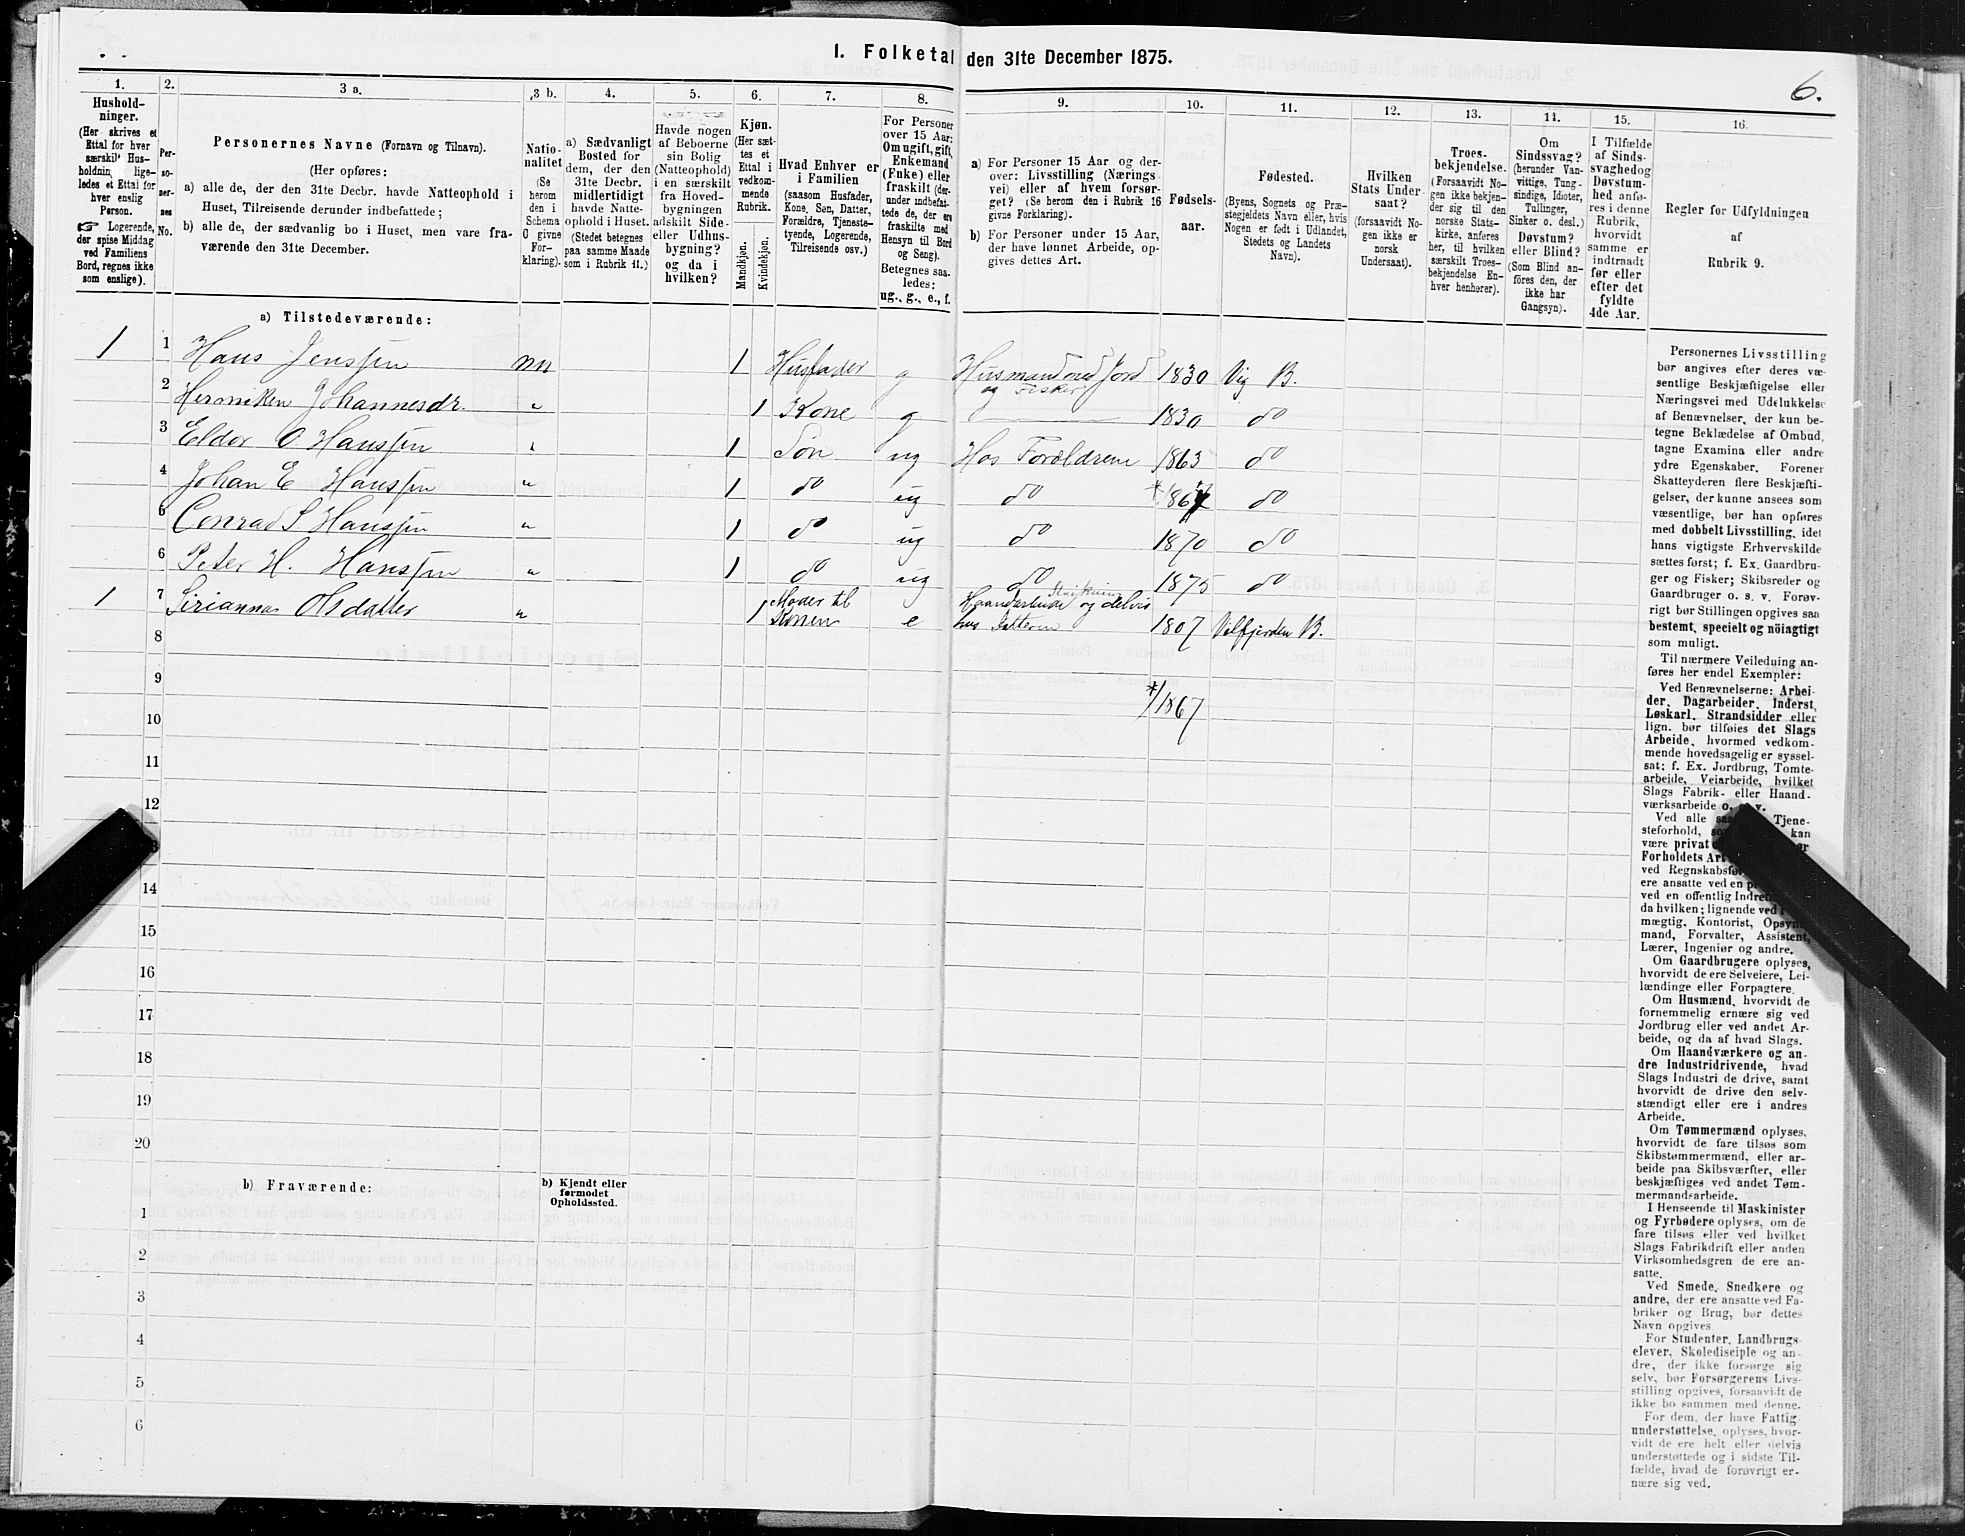 I. Folketal den 31te December 1875.
6.
1.
Hushold-
ninger.
(Her skrives et
Ettal for hver
særskilt Hus-
holdning lige-
ledes et Ettal for
hver enslig
Person.
☞ Logerende,
der spise Middag
ved Familiens
Bord, regnes ikke
som enslige).
2.
Per-
so-
ner-
nes
No.
3 a.
Personernes Navne (Fornavn og Tilnavn).
(Her opføres:
a) alle de, der den 31te Decbr. havde Natteophold i
Huset, Tilreisende derunder indbefattede;
b) alle de, der sædvanlig bo i Huset, men vare fra-
værende den 31te December.
3 b.
Natio-
nalitet
(Se
herom
den i
Schema
O givne
For-
klaring).
4.
a) Sædvanligt
Bosted for
dem, der den
31te Decbr.
midlertidigt
havde Natte-
ophold i Huset.
(Stedet betegnes
paa samme Maade
som i Rubrik 11.)
5.
Havde nogen
af Beboerne
sin Bolig
(Natteophold)
i en særskilt
fra Hoved-
bygningen
adskilt Side-
eller Udhus-
bygning?
og da i
hvilken?
6.
Kjøn.
(Her sæt-
tes et
Ettal i
vedkom-
mende
Rubrik.
Mandkjøn.
Kvindekjøn.
7.
Hvad Enhver er
i Familien
(saasom Husfader,
Kone, Søn, Datter,
Forældre, Tjeneste-
tyende, Logerende,
Tilreisende osv.)
8.
For Personer
over 15 Aar:
Om ugift, gift,
Enkemand
(Enke) eller
fraskilt (der-
under indbefat-
tede de, der ere
fraskilte med
Hensyn til Bord
og Seng).
Betegnes saa-
ledes:
ug., g., e., f.
9.
a) For Personer 15 Aar og der-
over: Livsstilling (Nærings-
vei) eller af hvem forsør-
get? (Se herom den i Rubrik 16
givne Forklaring).
b) For Personer under 15 Aar,
der have lønnet Arbeide, op-
gives dettes Art.
10.
Fødsels-
aar.
11.
Fødested.
(Byens, Sognets og Præ-
stegjeldets Navn eller, hvis
Nogen er født i Udlandet,
Stedets og Landets
Navn).
12.
Hvilken
Stats Under-
saat?
(forsaavidt No-
gen ikke er
norsk
Undersaat).
13.
Troes-
bekjendelse.
(Forsaavidt No-
gen ikke bekjen-
der sig til den
norske Stats-
kirke, anføres
her, til hvilken
særskilt Troes-
bekjendelse En-
hver henhører).
14.
Om
Sindssvag?
(herunder Van-
vittige, Tung-
sindige, Idioter,
Tullinger,
Sinker o. desl.)
Døvstum?
eller Blind?
(Som Blind an-
føres den, der
ikke har
Gangsyn).
15.
I Tilfælde
af Sinds-
svaghedog
Døvstum-
hed anfø-
res i denne
Rubrik,
hvorvidt
samme er
indtraadt
før eller
efter det
fyldte
4de Aar.
16.
Regler for Udfyldningen
af
Rubrik 9.
a) Tilstedeværende:
1 1 Hans Jenssen nn 1 Husfader g Husmand med Jord 1830 Vig B.
og Fisker
2 Henriken Johannesdr. " 1 Kone g 1830 do
3 Eldor O Hanssen " 1 Søn ug Hos Forældrene 1863 do
4 Johan E Hanssen " 1 do ug do * 1867 do
5 Conrad S. Hanssen " 1 do ug do 1870 do
6 Peter H. Hanssen " 1 do ug do 1875 do
1 7 Siriannas Olsdatter " 1 Moder til Konen e Haandarbeide og delvis hos Datteren 1807 Velfjorden B.
8
9
*/1867
10
11
12
14
15
16
17
18
19
20
b) Fraværende:
b) Kjendt eller
formodet
Opholdssted.
1
2
3
4
5
6
Personernes Livsstilling
bør angives efter deres væ-
sentlige Beskjæftigelse eller
Næringsvei med Udelukkelse
af Benævnelser, der kun be-
tegne Beklædelse af Ombud,
tagne Examina eller andre
ydre Egenskaber. Forener
Skatteyderen flere Beskjæfti-
gelser, der kunne ansees som
væsentlige, bør han opføres
med dobbelt Livsstilling, idet
hans vigtigste Erhvervskilde
sættes først; f. Ex. Gaardbru-
ger og Fisker; Skibsreder og
Gaardbruger o. s. v. Forøv-
rigt bør Stillingen opgives saa
bestemt, specielt og nöiagtigt
som muligt.
Til nærmere Veiledning an-
føres her endel Exempler:
Ved Benævnelserne: Arbei-
der, Dagarbeider, Inderst,
Løskarl, Strandsidder eller
lign. bør tilføies det Slags
Arbeide, hvormed vedkom-
mende hovedsagelig er syssel-
sat; f. Ex. Jordbrug, Tomte-
arbeide, Veiarbeide, hvilket
Slags Fabrik- eller Haand-
værksarbeide o. s. v.
Ved alle Tjene-
steforhold, kan
være privat
Forholdets Art
ved Regnskabsfør
ere ansatte ved en
ved en offentlig Indret
da hvilken; lignende ved
mægtig, Kontorist, Opsyns-
mand, Forvalter, Assistent,
Lærer, Ingeniør og andre.
Om Gaardbrugere oplyses,
hvorvidt de ere Selveiere, Lei-
lændinge eller Forpagtere.
Om Husmænd, hvorvidt de
fornemmelig ernære sig ved
Jordbrug eller ved andet Ar-
beide, og da af hvad Slags.
Om Haandværkere og an-
dre Industridrivende, hvad
Slags Industri de drive, samt
hvorvidt de drive den selv-
stændigt eller ere i andres
Arbeide.
Om Tømmermænd oplyses,
hvorvidt de fare tilsøs som
Skibstømmermænd, eller ar-
beide paa Skibsværfter, eller
beskjæftiges ved andet Tøm-
mermandsarbeide.
I Henseende til Maskinister
og Fyrbødere oplyses, om de
fare tilsøs eller ved hvilket
Slags Fabrikdrift eller anden
Virksomhedsgren de ere an-
satte.
Ved Smede, Snedkere og
andre, der ere ansatte ved Fa-
briker og Brug, bør dettes
Navn opgives
For Studenter, Landbrugs-
elever, Skoledisciple og an-
dre, der ikke forsørge sig
selv, bør Forsørgerens Livs-
stilling opgives, forsaavidt de
ikke bo sammen med denne.
For dem, der have Fattig-
understøttelse, oplyses, hvor-
vidt de ere helt eller delvis
understøttede og i sidste Til-
fælde, hvad de forøvrigt er-
nære sig ved.